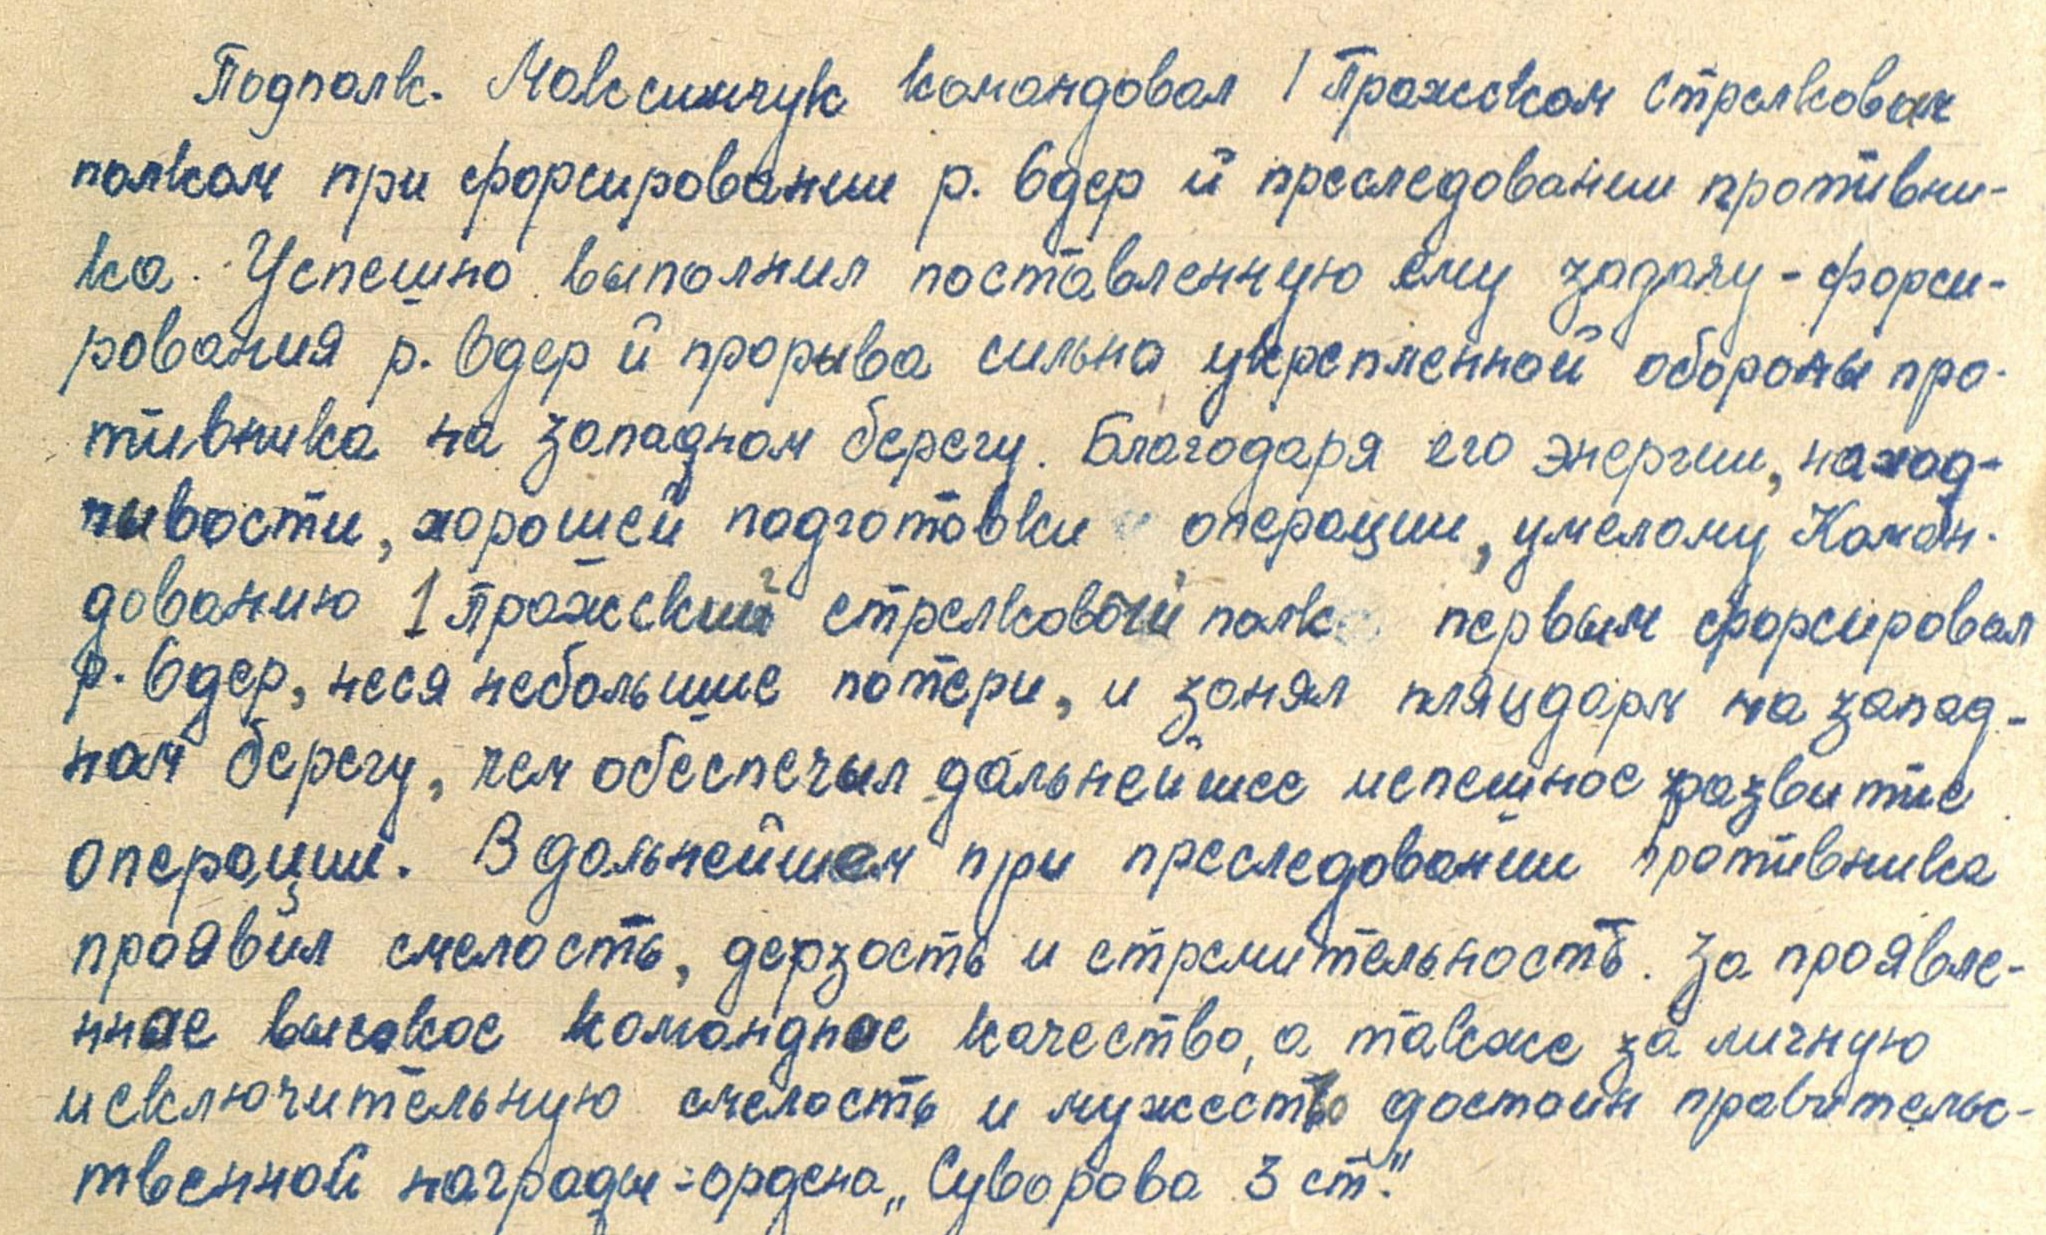 Подполк. Максимчук командовал 1 Пражском стрелковом
полком при форсировании р. Одер й преследовании противни-
ка. Успешно выполнил поставленную ему задачу - форси-
рования р. Одер й прорыва сильно укрепленной обороны про-
тивника на западном берегу. Благодаря его энергии, наход-
чивости, хорошей подготовки операции, умелому Коман-
дованию 1 Пражский стрелковый полк первым форсировал
р. Одер, неся небольшие потери, и занял пляцдарм на запад-
ном берегу, чем обеспечыл дальнейшее испешное развитие
операции. В дальнейшем при преследовании противника
проявил смелость, дерзость и стремительность. За проявле-
нное высокое командное качество, а также за личную
исключительную смелость и мужество достоин правительс-
твенной награды - ордена „Суворова 3 ст."